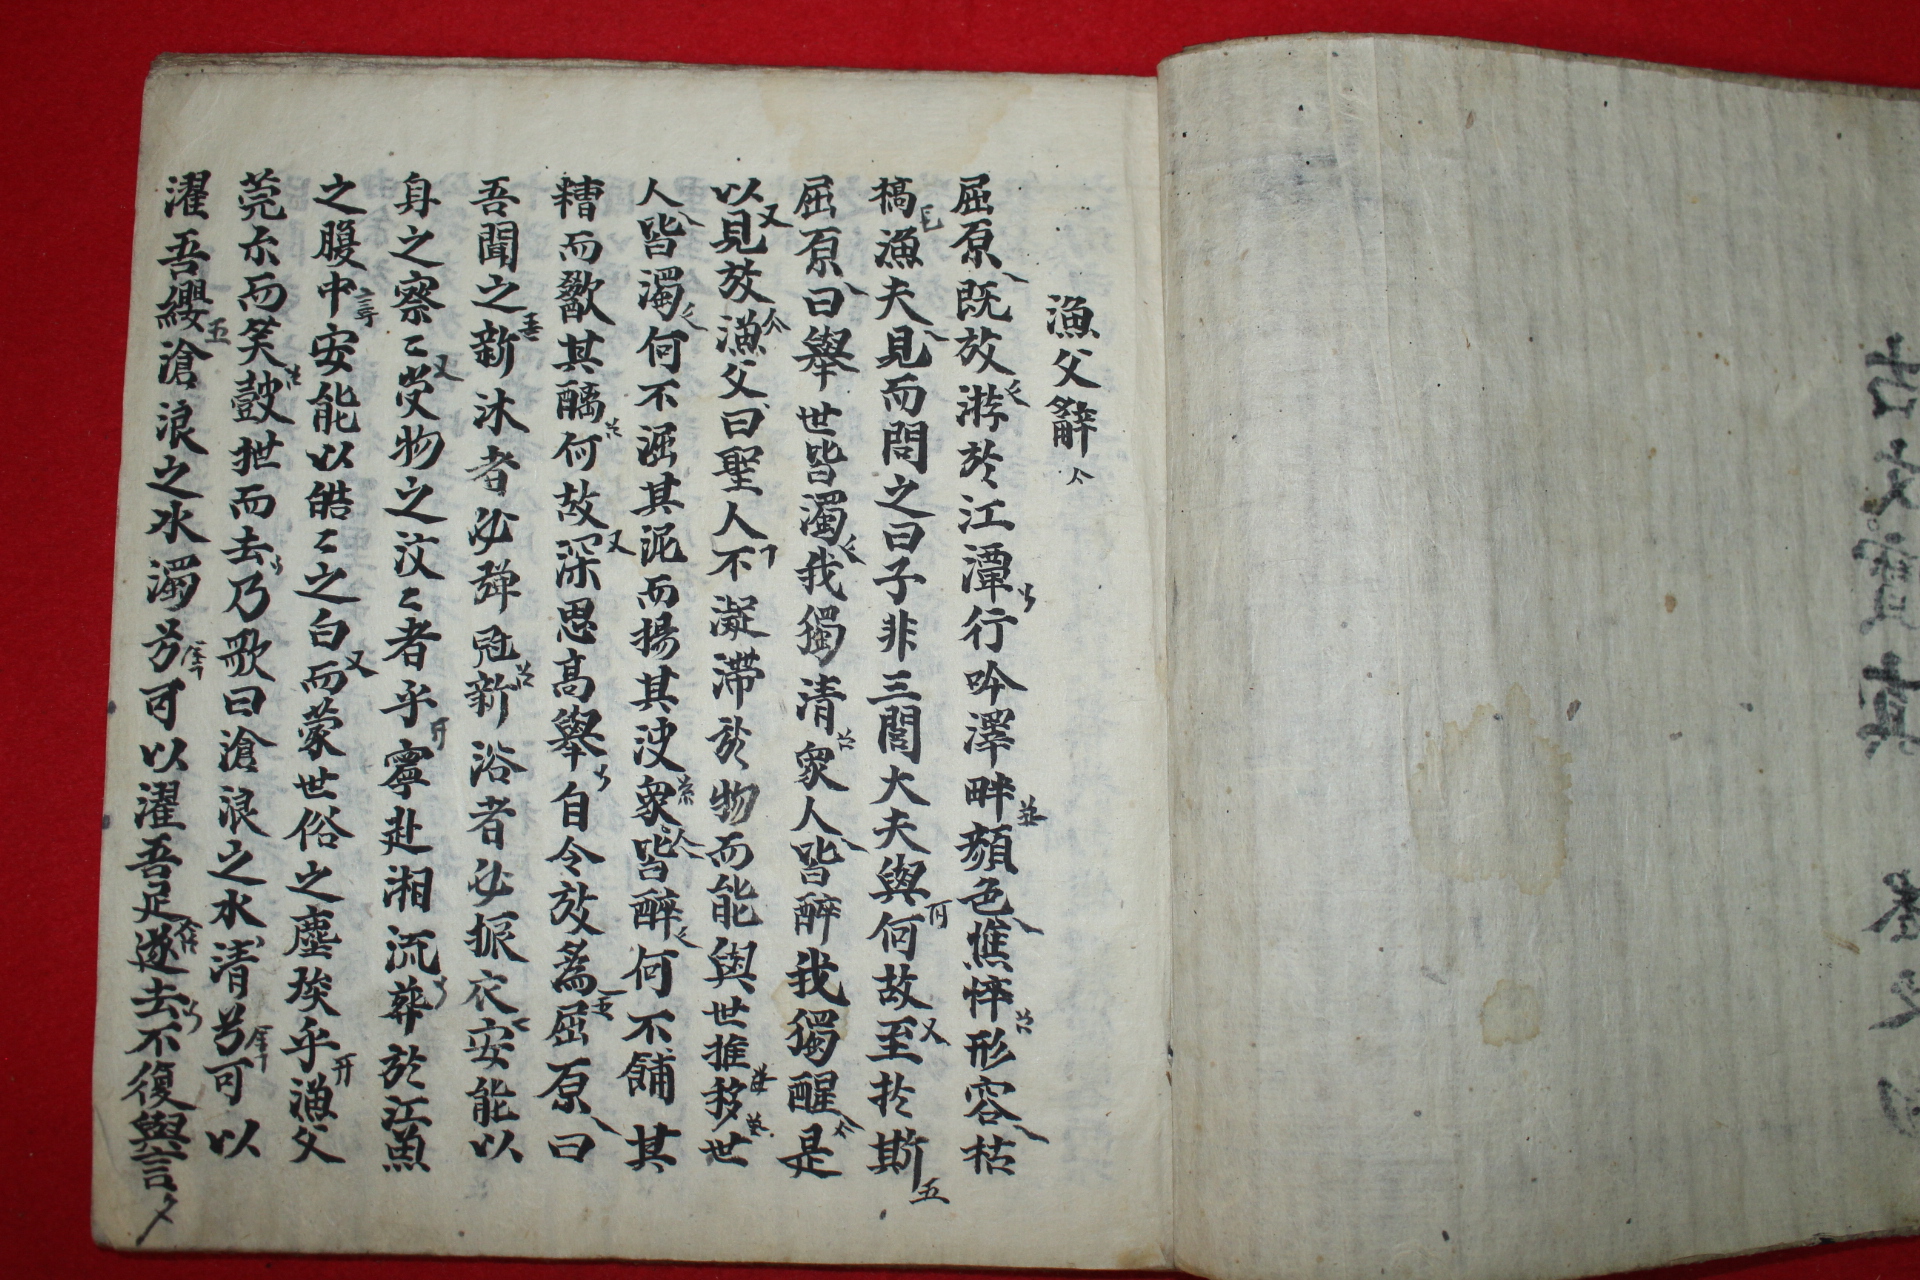 漁父辭
屈原既放游於江潭行吟澤畔顔色憔悴形容枯
槁漁夫見而問之曰子非三閭大夫與何故至於斯
屈原曰舉世皆濁我獨清衆人皆醉我獨醒是
以見放漁父曰聖人不凝滯於物而能與世推移世
人皆濁何不淈其泥而揚其波衆皆醉何不餔其
糟而歠其醨何故深思高舉自令放爲屈原曰
吾聞之新沐者必彈冠新浴者必振衣安能以
身之察〻受物之汶〻者乎寧赴湘流葬於江魚
之腹中安能以皓〻之白而蒙世俗之塵埃乎漁父
莞尒而笑鼓枻而去乃歌曰滄浪之水清兮可以
濯吾纓滄浪之水濁兮可以濯吾足遂去不復與言